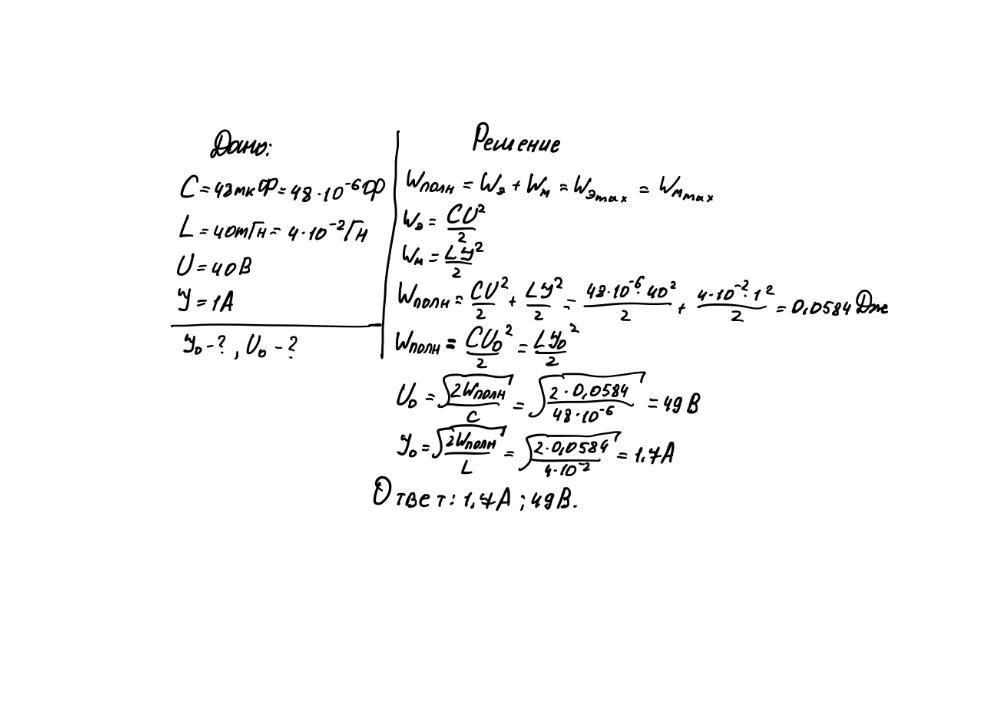 Дано:
C = 48мкФ = 48·10⁻⁶Ф
L = 40mГн = 4·10⁻²Гн
U = 40В
У = 1А
У₀ - ? , U₀ - ?
Решение
Wполн = Wэ + Wм = Wэmax = Wмmax
Wэ = CU²/2
Wм = LУ²/2
Wполн = CU²/2 + LУ²/2 = 48·10⁻⁶·40²/2 + 4·10⁻²·1²/2 = 0,0584 Дж
Wполн = CU₀²/2 = LУ₀²/2
U₀ = √(2Wполн/C) = √(2·0,0584/48·10⁻⁶) = 49В
У₀ = √(2Wполн/L) = √(2·0,0584/4·10⁻²) = 1,7А
Ответ: 1,7А ; 49В.